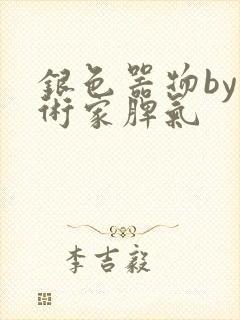 銀色器物by
術家脾氣
李吉毅